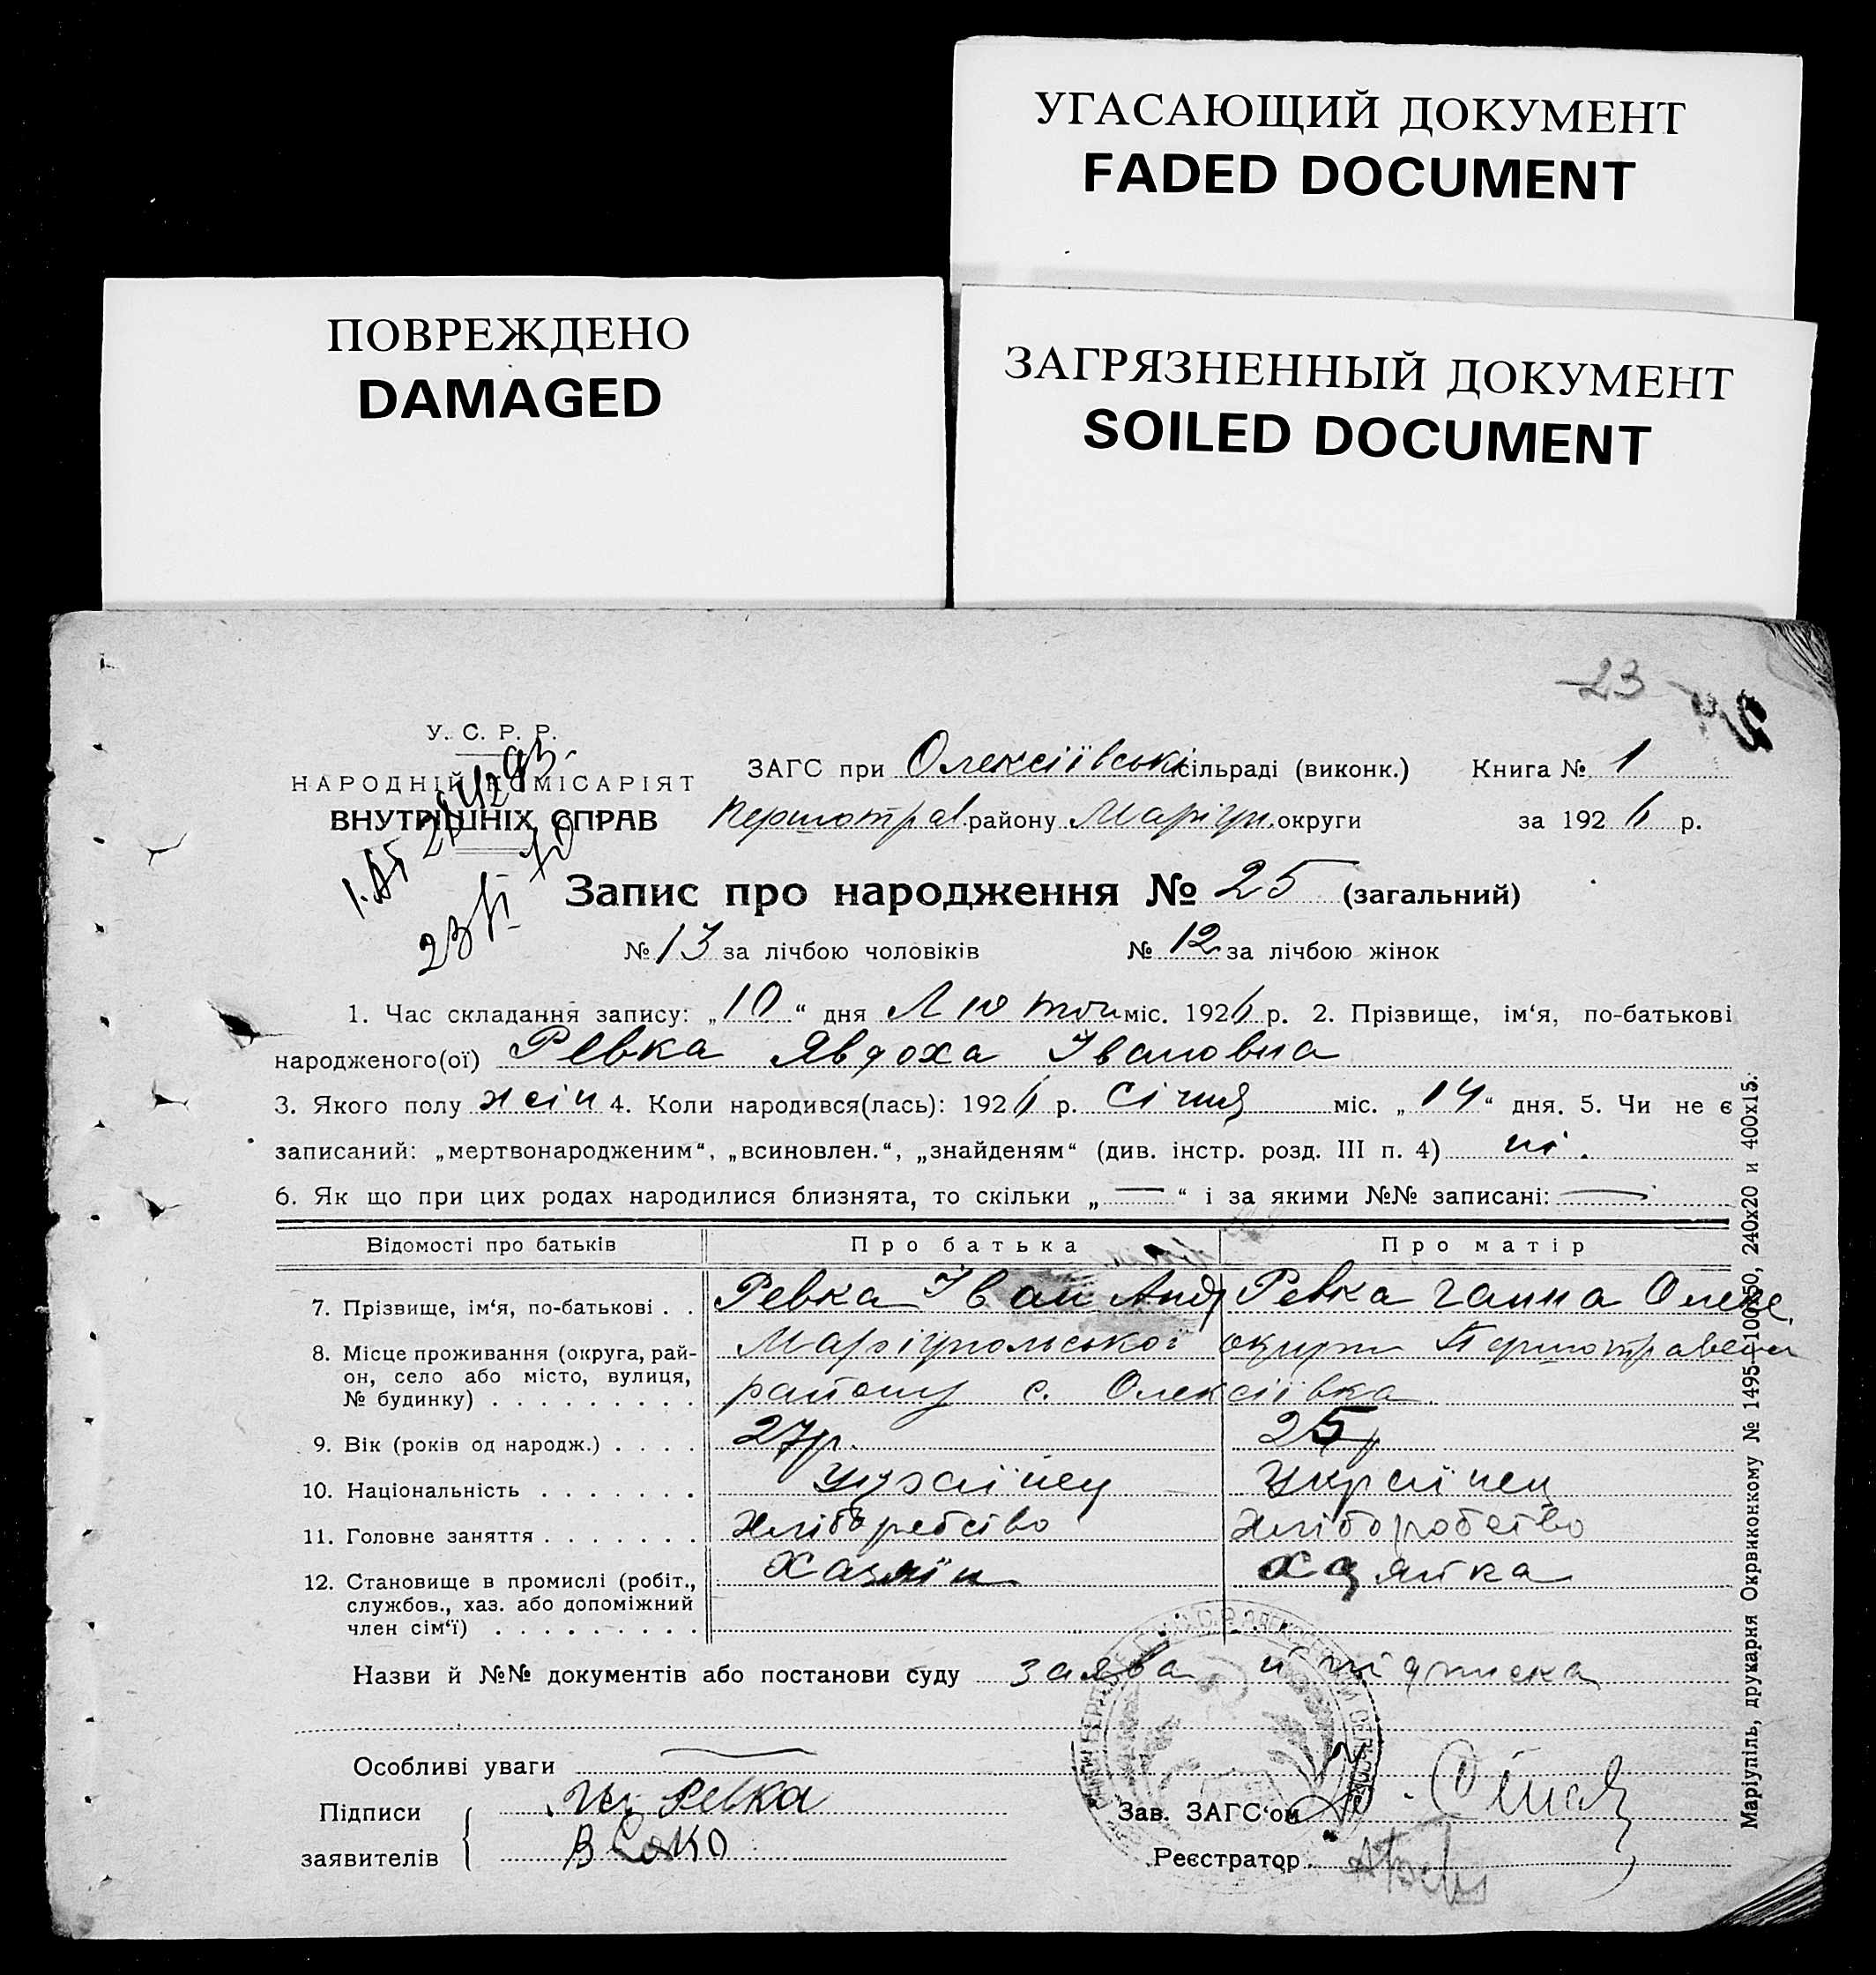 УГАСАЮЩИЙ ДОКУМЕНТ
FADED DOCUMENT
ПОВРЕЖДЕНО
DAMAGED
ЗАГРЯЗНЕННЫЙ ДОКУМЕНТ
SOILED DOCUMENT
23
У. С. Р. Р.
НАРОДНІЙ КОМІСАРІЯТ
ВНУТРІШНІХ СПРАВ
ЗАГС при Олексіївські сільраді (виконк.) Книга № 1
Першотрав. району Маріуп. округи за 1926 р.
Запис про народження № 25 (загальний)
№ 13 за лічбою чоловіків № 12 за лічбою жінок
1. Час складання запису: „10“ дня Лютого міс. 1926 р. 2. Прізвище, ім‘я, по-батькові
народженого(ої) Ревка Явдоха Івановна
3. Якого полу жін 4. Коли народився(лась): 1926 р. Січня міс. „14“ дня. 5. Чи не є
записаний: „мертвонародженим“, „всиновлен.“, „знайденям“ (див. інстр. розд. III п. 4) ні.
6. Як що при цих родах народилися близнята, то скільки „—“ і за якими №№ записані: —
Відомості про батьків Про батька Про матір
7. Прізвище, ім‘я, по-батькові . . Ревка Іван Анд Ревка Ганна Олекс.
8. Місце проживання (округа, рай-
он, село або місто, вулиця,
№ будинку) . . . . . . . . .
Маріупольської округи Першотравен
району с. Олексіївка.
9. Вік (років од народж.) . . . . 27р. 25р
10. Національність . . . . . . . українец українец
11. Головне заняття . . . . . . . Хліборобство Хліборобство
12. Становище в промислі (робіт., Хазяїн Хазяйка
службов., хаз. або допоміжний
член сім‘ї) . . . . . . . . .
Назви й №№ документів або постанови суду заява й підписка
Особливі уваги —
Підписи Ив Ревка
заявителів
Зав. ЗАГС‘ом
Реєстратор
Маріупіль, друкарня Окрвиконкому № 1495—100х50, 240х20 и 400х15.